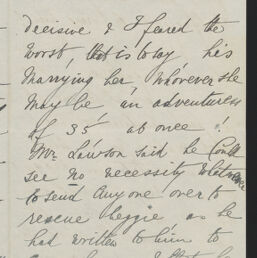 decisive & I feared the
worst, that is to say, his
Marrying her, whoever she
May be, an adventuress
of 35 at once!
Mr Lawson said he Could
see no necessity whatever
to send Anyone over to
rescue Reggie as he
had written to him to